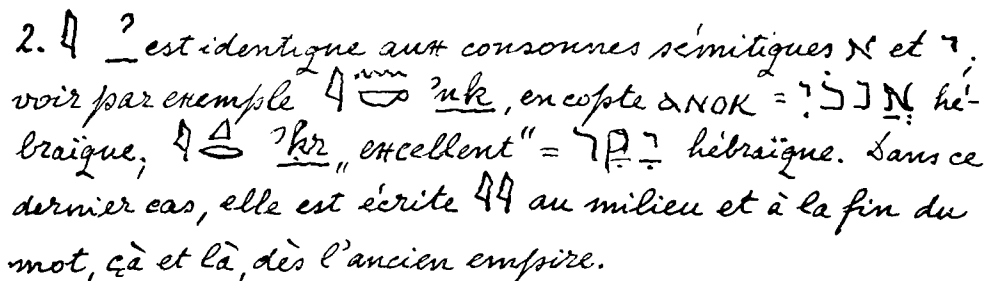 2. 𓇋 ʾ est identique aux consonnes sémitiques א et י,
voir par exemple 𓇋𓈖𓎡 ʾnk, en copte ⲁⲛⲟⲕ = אָנֹכִי hé-
braïque, 𓇋𓈎𓂋 ʾḳr „excellent“ = יָקָר hébraïque. Dans ce
dernier cas, elle est écrite 𓇋𓇋 au milieu et à la fin du
mot, çà et là, dès l'ancien empire.